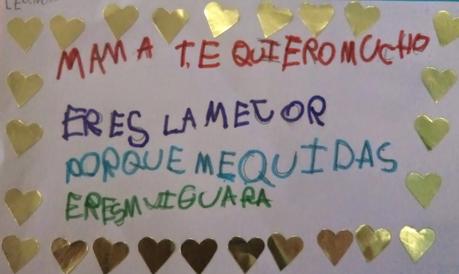 MAMA TE QUIERO MUCHO
ERES LA MECOR
PORQUE ME QUIDAS
ERES MUI GUARA